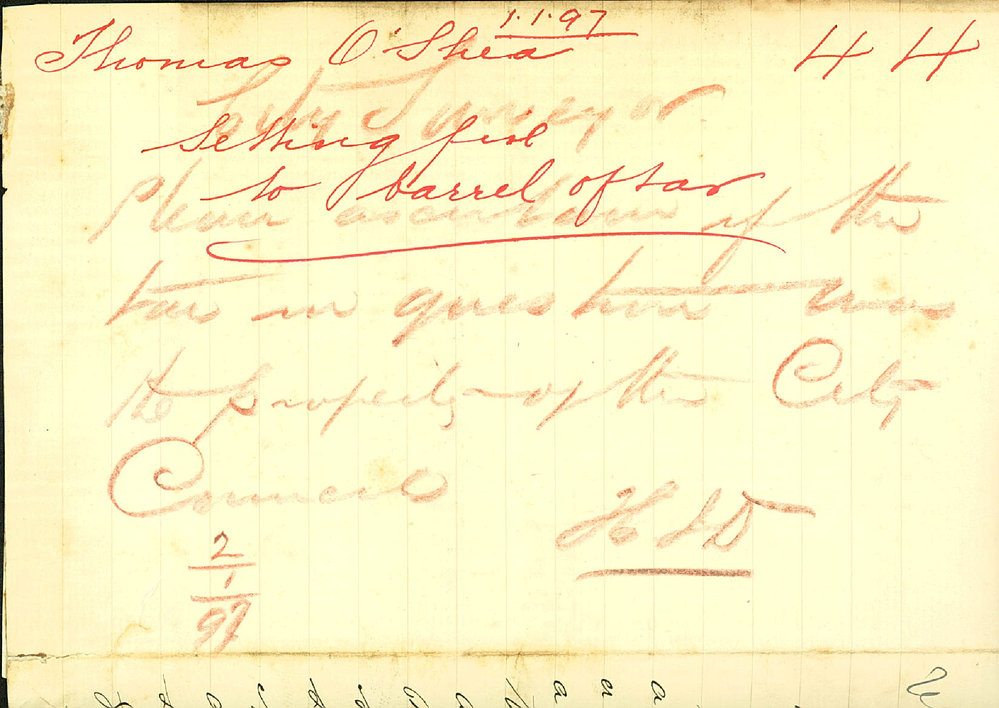 1.1.97
Thomas O'Shea 44
City Surveyor
Setting fire
to barrel of tar
Please ascertain if the
tar in question was
the property of the City
Council
H J D
2
1
97